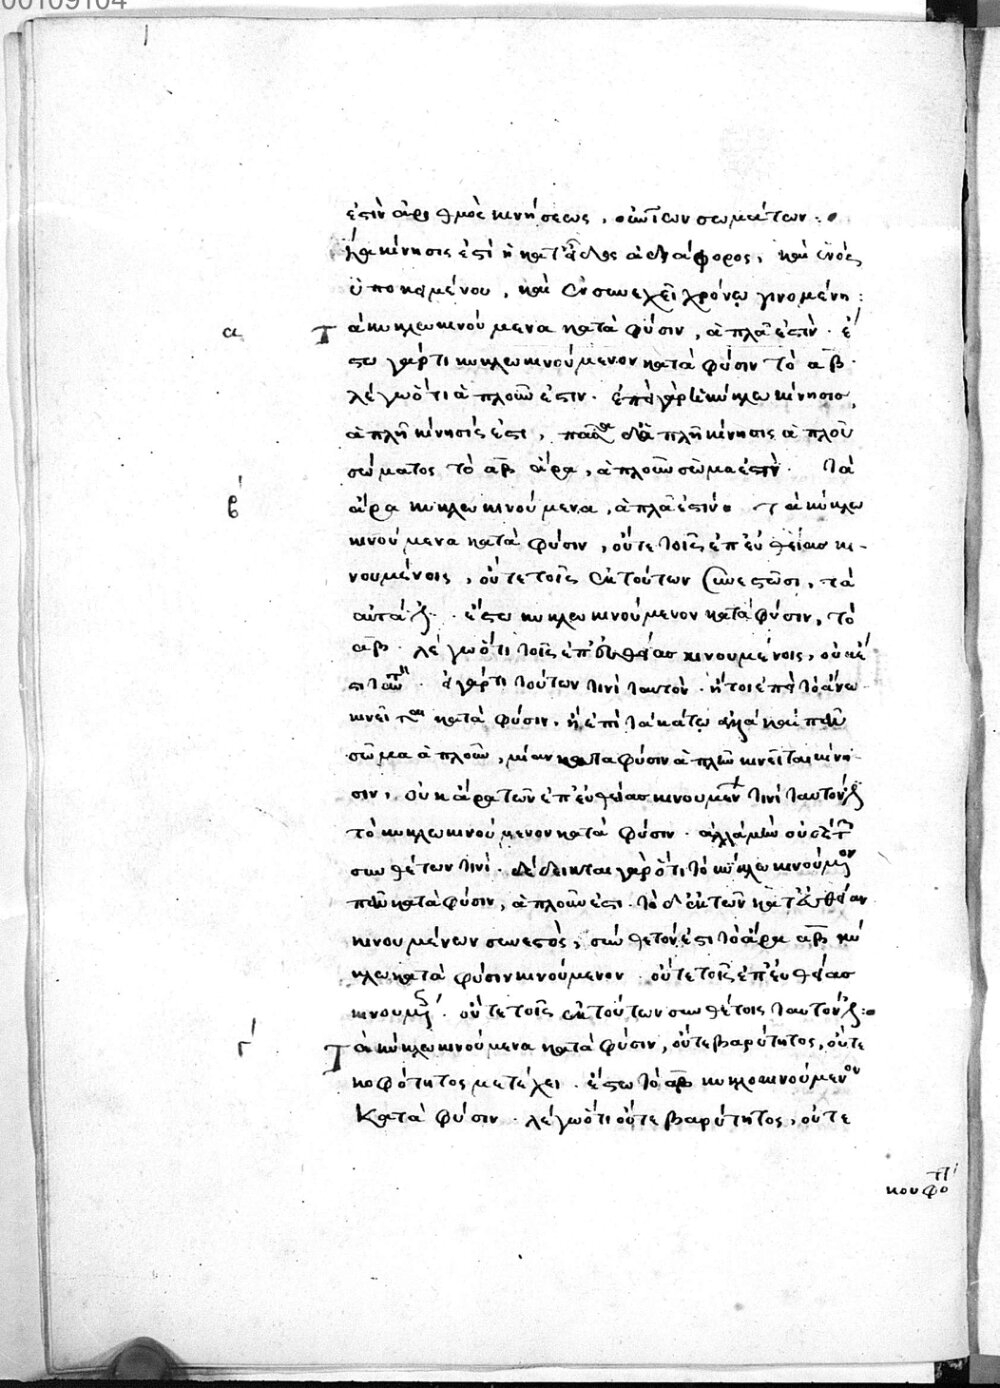 00109104
ἐστὶν ἀριθμὸς κινήσεως, οὐρανίων σωμάτων:
Μία κίνησις ἐστὶ ἡ κατ' εἶδος ἀδιάφορος, καὶ ἑνὸς
ὑποκειμένου, καὶ ἐν συνεχεῖ χρόνῳ γινομένη:
α Τὰ κύκλω κινούμενα κατὰ φύσιν, ἁπλᾶ ἐστὶν. ἔ
στω γάρ τι κύκλω κινούμενον κατὰ φύσιν τὸ αβ.
λέγω ὅτι ἁπλοῦν ἐστιν. ἐπεὶ γὰρ ἡ κύκλω κίνησις
ἁπλῆ κίνησίς ἐστι, πᾶσα δὲ ἁπλῆ κίνησις ἁπλοῦ
σώματος τὸ αβ ἄρα, ἁπλοῦν σῶμα ἐστὶν. τὰ
β ἄρα κύκλω κινούμενα, ἁπλᾶ ἐστίν. τὰ κύκλω
κινούμενα κατὰ φύσιν, οὔτε τοῖς ἐπ' εὐθείας κι-
νουμένοις, οὔτε τοῖς ἐκ τούτων συνεστῶσι, τὰ
αὐτά ἐστι. ἔστω κύκλω κινούμενον κατὰ φύσιν, τὸ
αβ. λέγω ὅτι τοῖς ἐπ' εὐθείας κινουμένοις, οὐκ ἔ
στι ταυτὸν. εἰ γάρ τι τούτων τινὶ ταυτὸν. ἤτοι ἐπὶ τὸ ἄνω
κινεῖται κατὰ φύσιν, ἢ ἐπὶ τὰ κάτω ἀλλὰ καὶ πᾶν
σῶμα ἁπλοῦν, μίαν κατὰ φύσιν ἁπλῶν κινεῖται κίνη
σιν, οὐκ ἄρα τῶν ἐπ' εὐθείας κινουμένων τινὶ ταυτόν ἐστι
τὸ κύκλω κινούμενον κατὰ φύσιν. ἀλλὰ μὴν οὐδὲ τῶν
συνθέτων τινὶ. δέδεικται γὰρ ὅτι τὸ κύκλω κινούμενον
πᾶν κατὰ φύσιν, ἁπλοῦν ἐστι. τὸ δ' ἐκ τῶν κατ' εὐθεῖαν
κινουμένων συνεστὸς, σύνθετόν ἐστι τὸ ἄρα αβ κύ
κλω κατὰ φύσιν κινούμενον. οὔτε τοῖς ἐπ' εὐθείας
κινουμένοις. οὔτε τοῖς ἐκ τούτων συνθέτοις ταυτόν ἐστι:
γ Τὰ κύκλω κινούμενα κατὰ φύσιν, οὔτε βαρύτητος, οὔτε
κοφότητος μετέχει. ἔστω τὸ αβ κυκλο κινούμενον
Κατὰ φύσιν. λέγω ὅτι οὔτε βαρύτητος, οὔτε
κουφότη